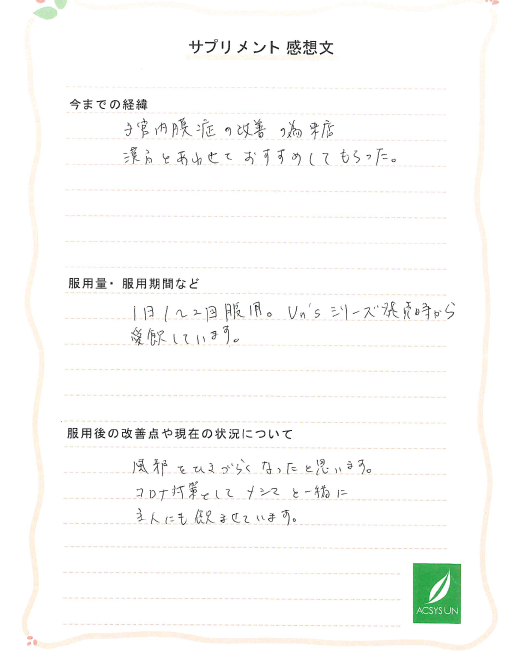 サプリメント 感想文
今までの経緯
子宮内膜症の改善の為来店
漢方とあわせておすすめしてもらった。
服用量・服用期間など
1日1〜2回服用。Un'sシリーズ発売時から
愛飲しています。
服用後の改善点や現在の状況について
風邪をひきづらくなったと思います。
コロナ対策として メシマと一緒に
主人にも飲ませています。
ACSYSUN